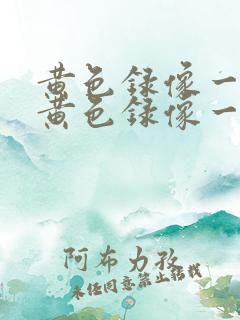 黄色録像一
黄色録像一
阿布力孜
未经同意禁止转载